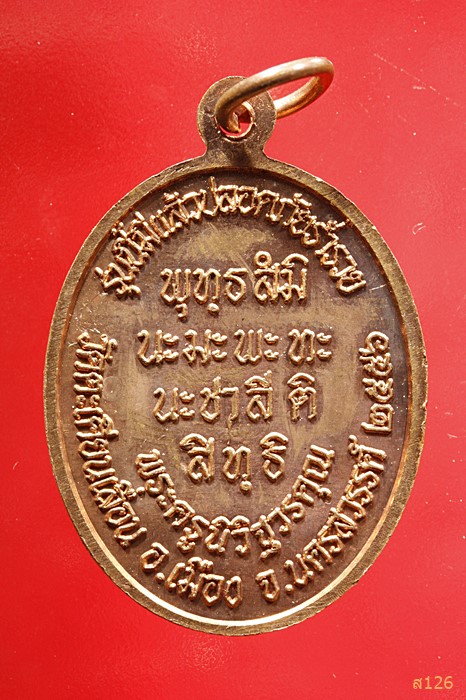 รุ่นนี้มีแล้วปลอดภัยร่ำรวย
พุทธสิมิ
นะมะพะทะ
นะชาลีติ
สิทธิ
พระครูนิวิฐวรคุณ
วัดตะเคียนเลื่อน อ.เมือง จ.นครสวรรค์ ๒๕๕๖
ส126